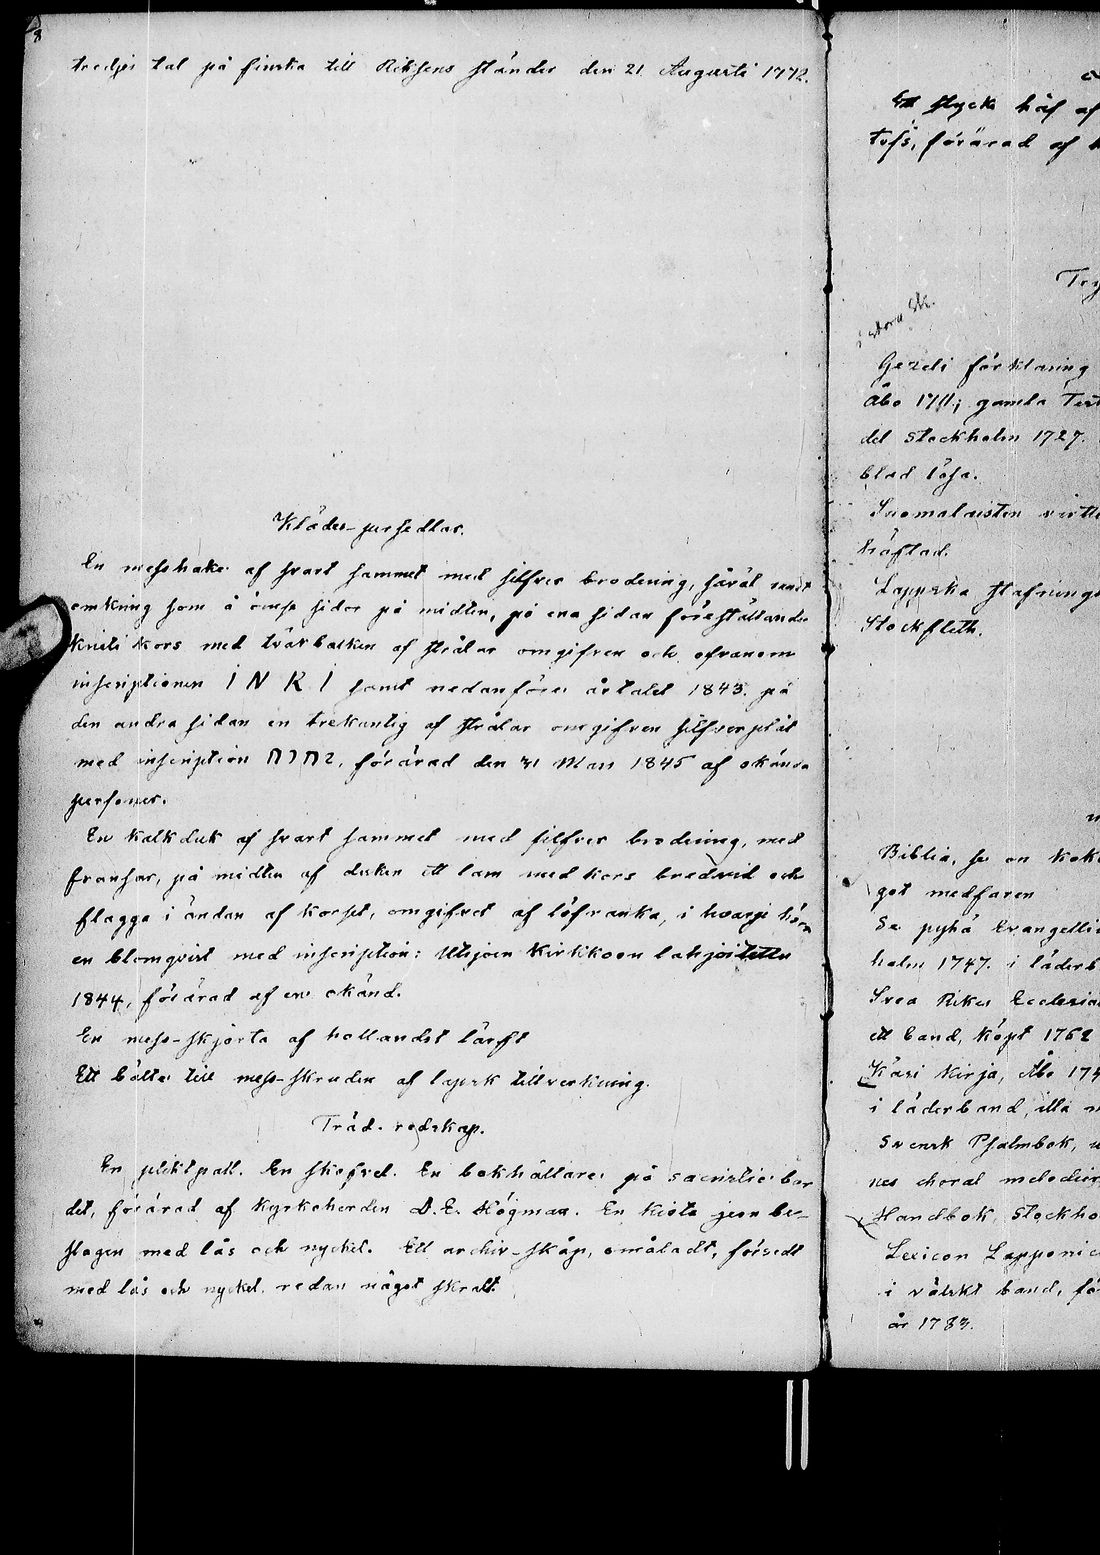 8
tredje tal på finska till Riksens ständer den 21 Augusti 1772.
Kläde-persedlar.
En messhake af svart sammet med silfver brodering, såväl rundt
omkring som å ömse sidor på midten, på ena sidan föreställande
Kristi kors med tvärbalken af strålar omgifven och ofvanom
inscriptionen I N R I samt nedanföre årtalet 1843. på
den andra sidan en trekantig af strålar omgifven silfverplåt
med inscription יהוה, förärad den 31 Mars 1845 af okända
personer.
En kalkduk af svart sammet med silfver brodering, med
fransar, på midten af duken ett lam med kors bredvid och
flagga i ändan af korset, omgifvet af löfranka, i hvarje hörn
en blomqvist med inscription: Utsjoen Kirkkoon lahjoitettu
1844, förärad af en okänd.
En mess-skjorta af hollandst lärft
Ett bälte till mess-skruden af lapsk tillverkning.
Träd-redskap.
En pliktpall. En skofvel. En bokhållare på sacristie bor
det, förärad af kyrkoherden D. E. Högman. En kista jern be-
slagen med lås och nyckel. Ett archiv-skåp, omåladt, försedt
med lås och nyckel, redan något skralt.
Ett styck häf af
tofs, förärad af
i stora Sk.
Gezeli förklaring
Åbo 1711; gamla Test
del Stockholm 1727.
blad lösa.
Suomalaisten
häftad.
Lappska stafnings
Stockfleth.
Biblia,
got medfaren
Se pyhä Evangeliu
holm 1747. i läderb
Svea Rikes Ecclesia
ett band, köpt 1762
Käsi Kirja, Åbo 174
i läderband, illa
Svensk Psalmbok,
nes choral melodier
Handbok, Stockho
Lexicon Lapponic
i välskt band, fö
år 1783.